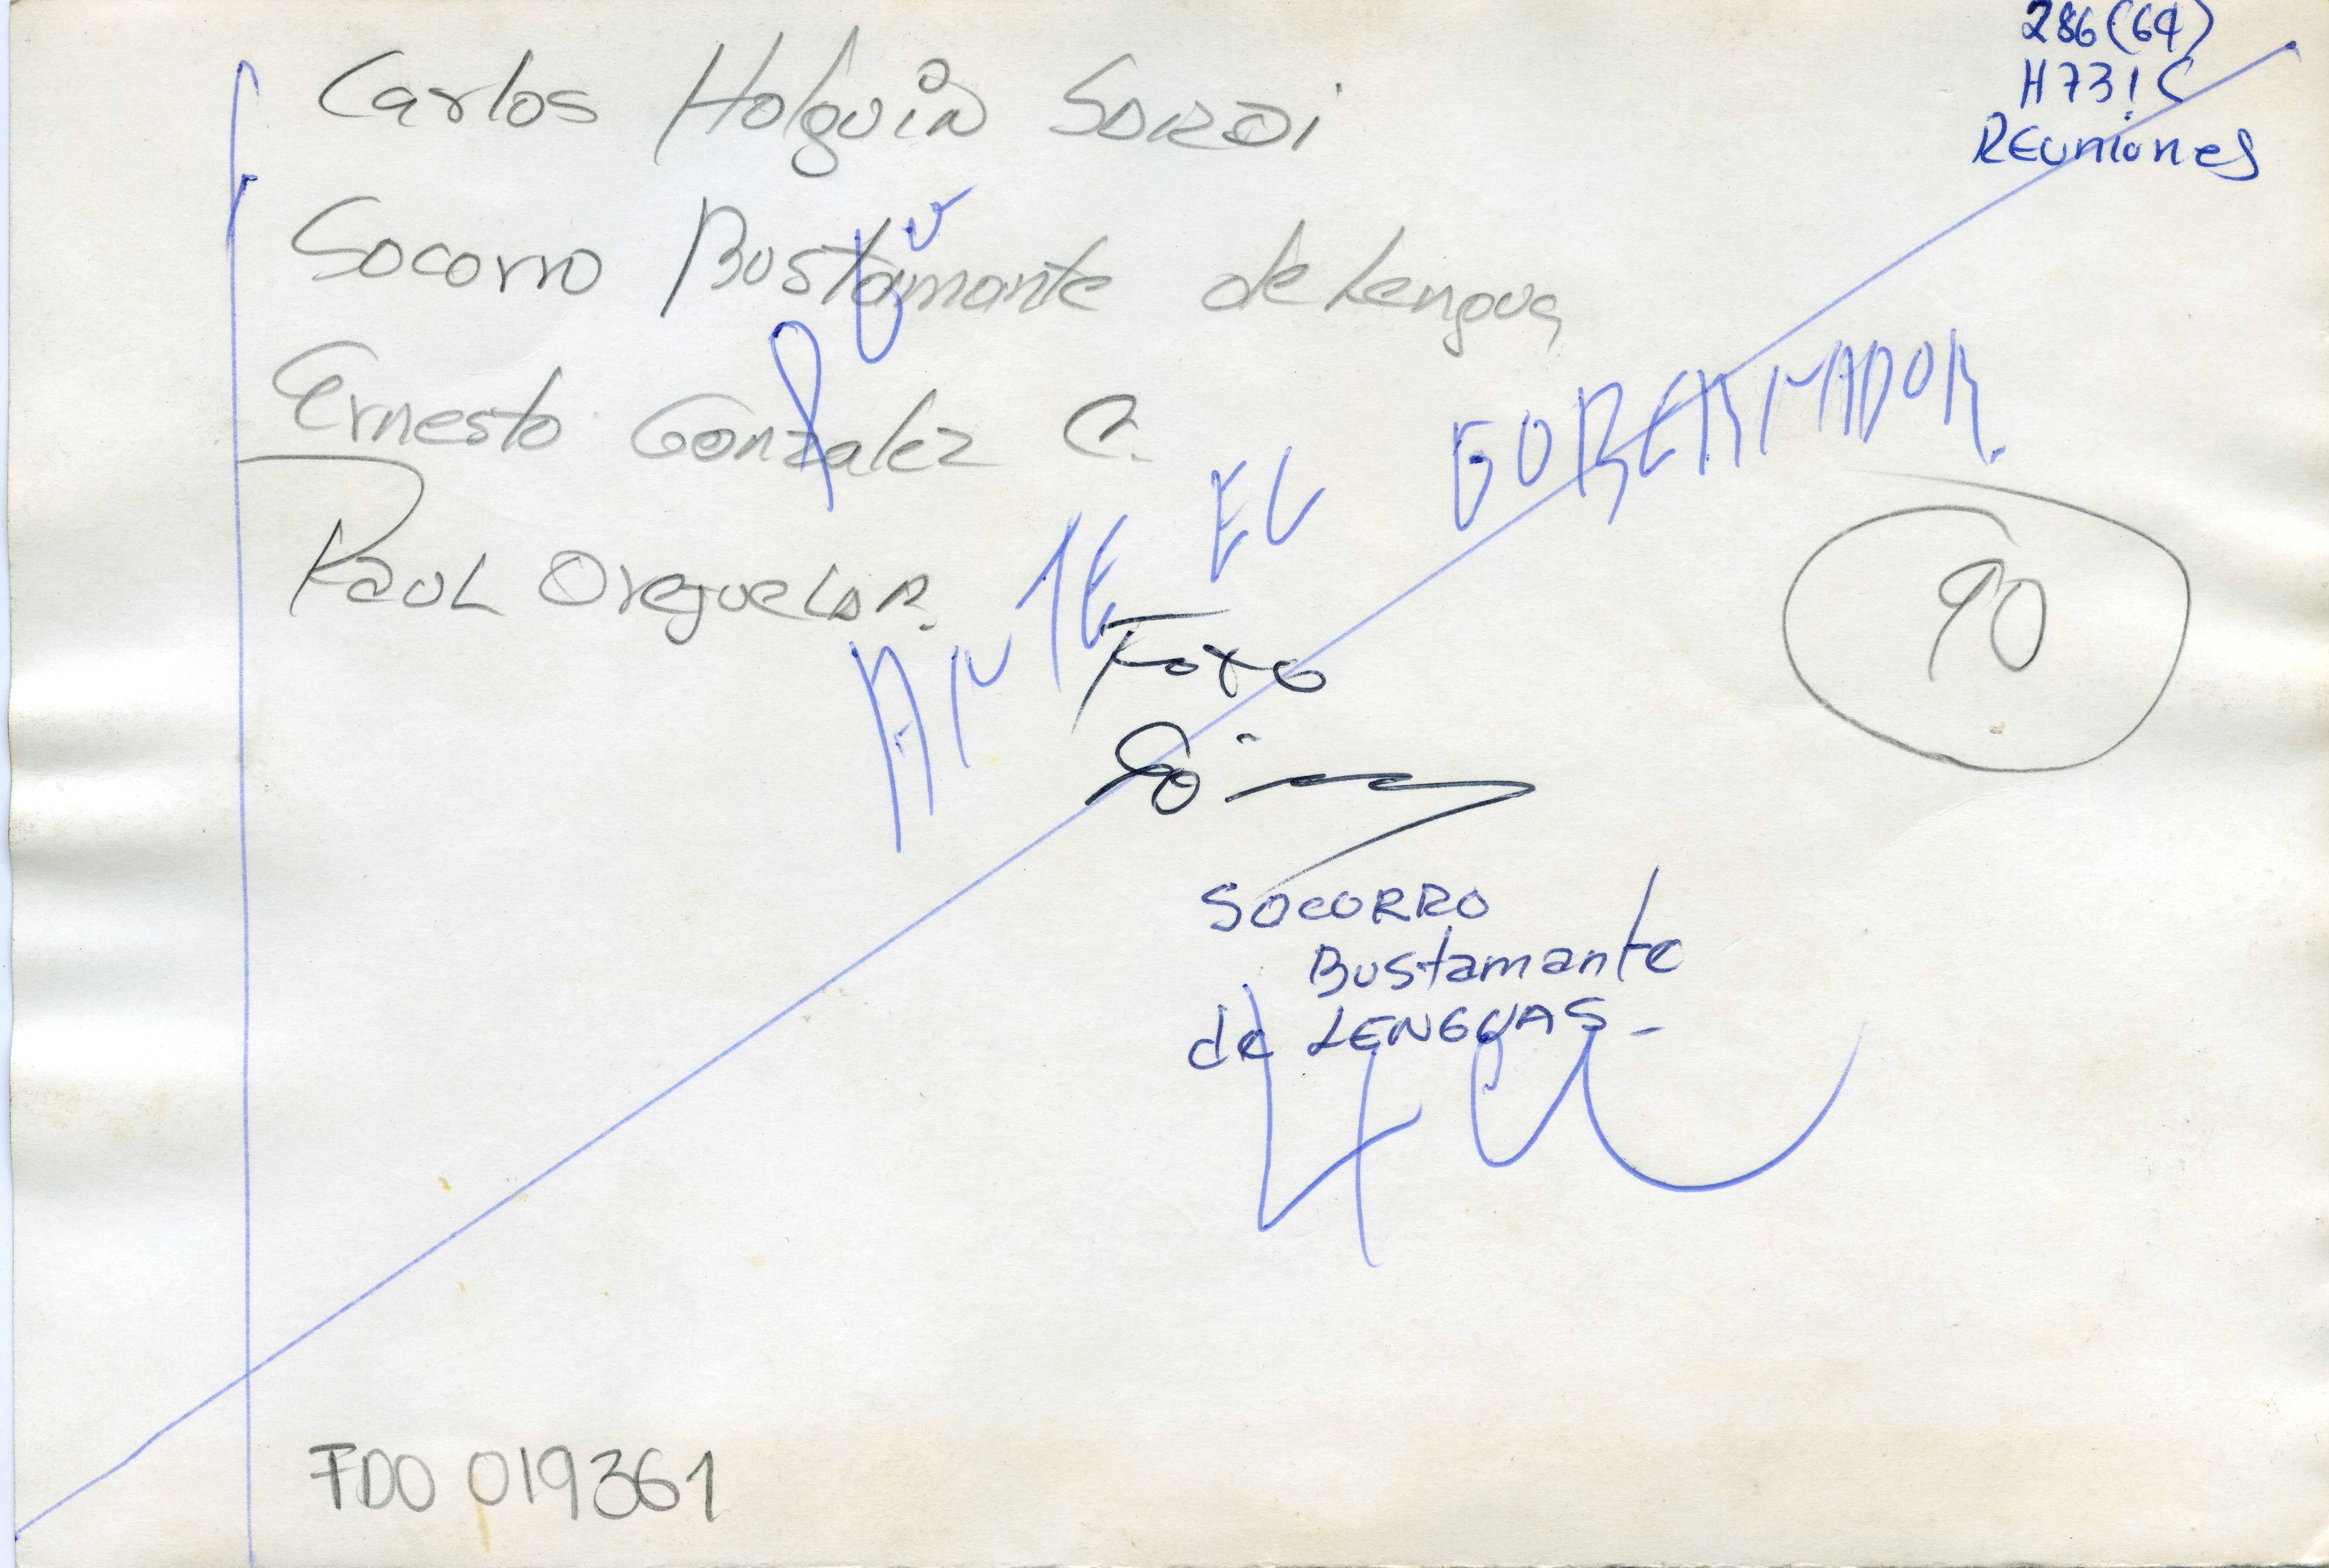 286(64)
H731C
REuniones
Carlos Holguin SARDi
Socorro Bustamante de Lengua
Ernesto Gonzalez C.
RAUL OregueLA R.
ANTE EL GOBERNADOR.
90
Foto
SOCORRO
Bustamante
de LENGUAS-
FDO 019361